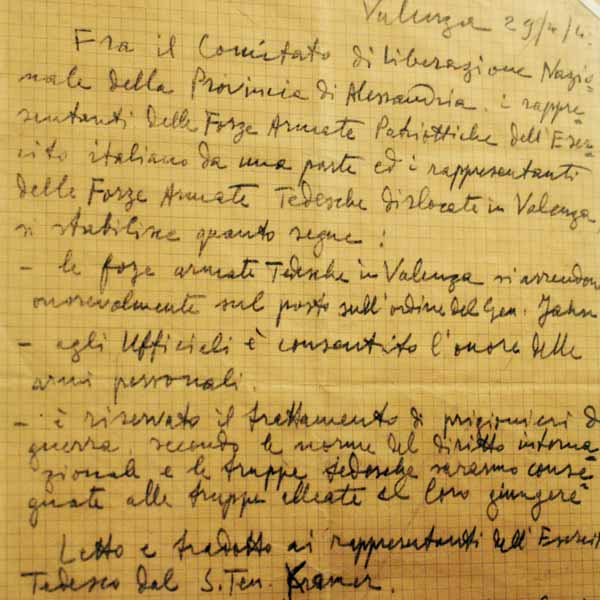 Valenza 29/4/4
Fra il Comitato di Liberazione Nazio-
nale della Provincia di Alessandria. i rappre-
sentanti delle Forze Armate Patriottiche dell'Eser-
cito italiano da una parte ed i rappresentanti
delle Forze Armate Tedesche dislocate in Valenza
si stabilisce quanto segue:
- le forze armate Tedesche in Valenza si arrendono
onorevolmente sul posto sull'ordine del Gen. Jahn
- agli Ufficiali è consentito l'onore delle
armi personali.
- è riservato il trattamento di prigionieri d
guerra, secondo le norme del diritto interna-
zionale e le truppe tedesche saranno conse-
gnate alle truppe alleate al loro giungere
Letto e tradotto ai rappresentanti dell'Esercit
Tedesco dal S.Ten. Kramer.